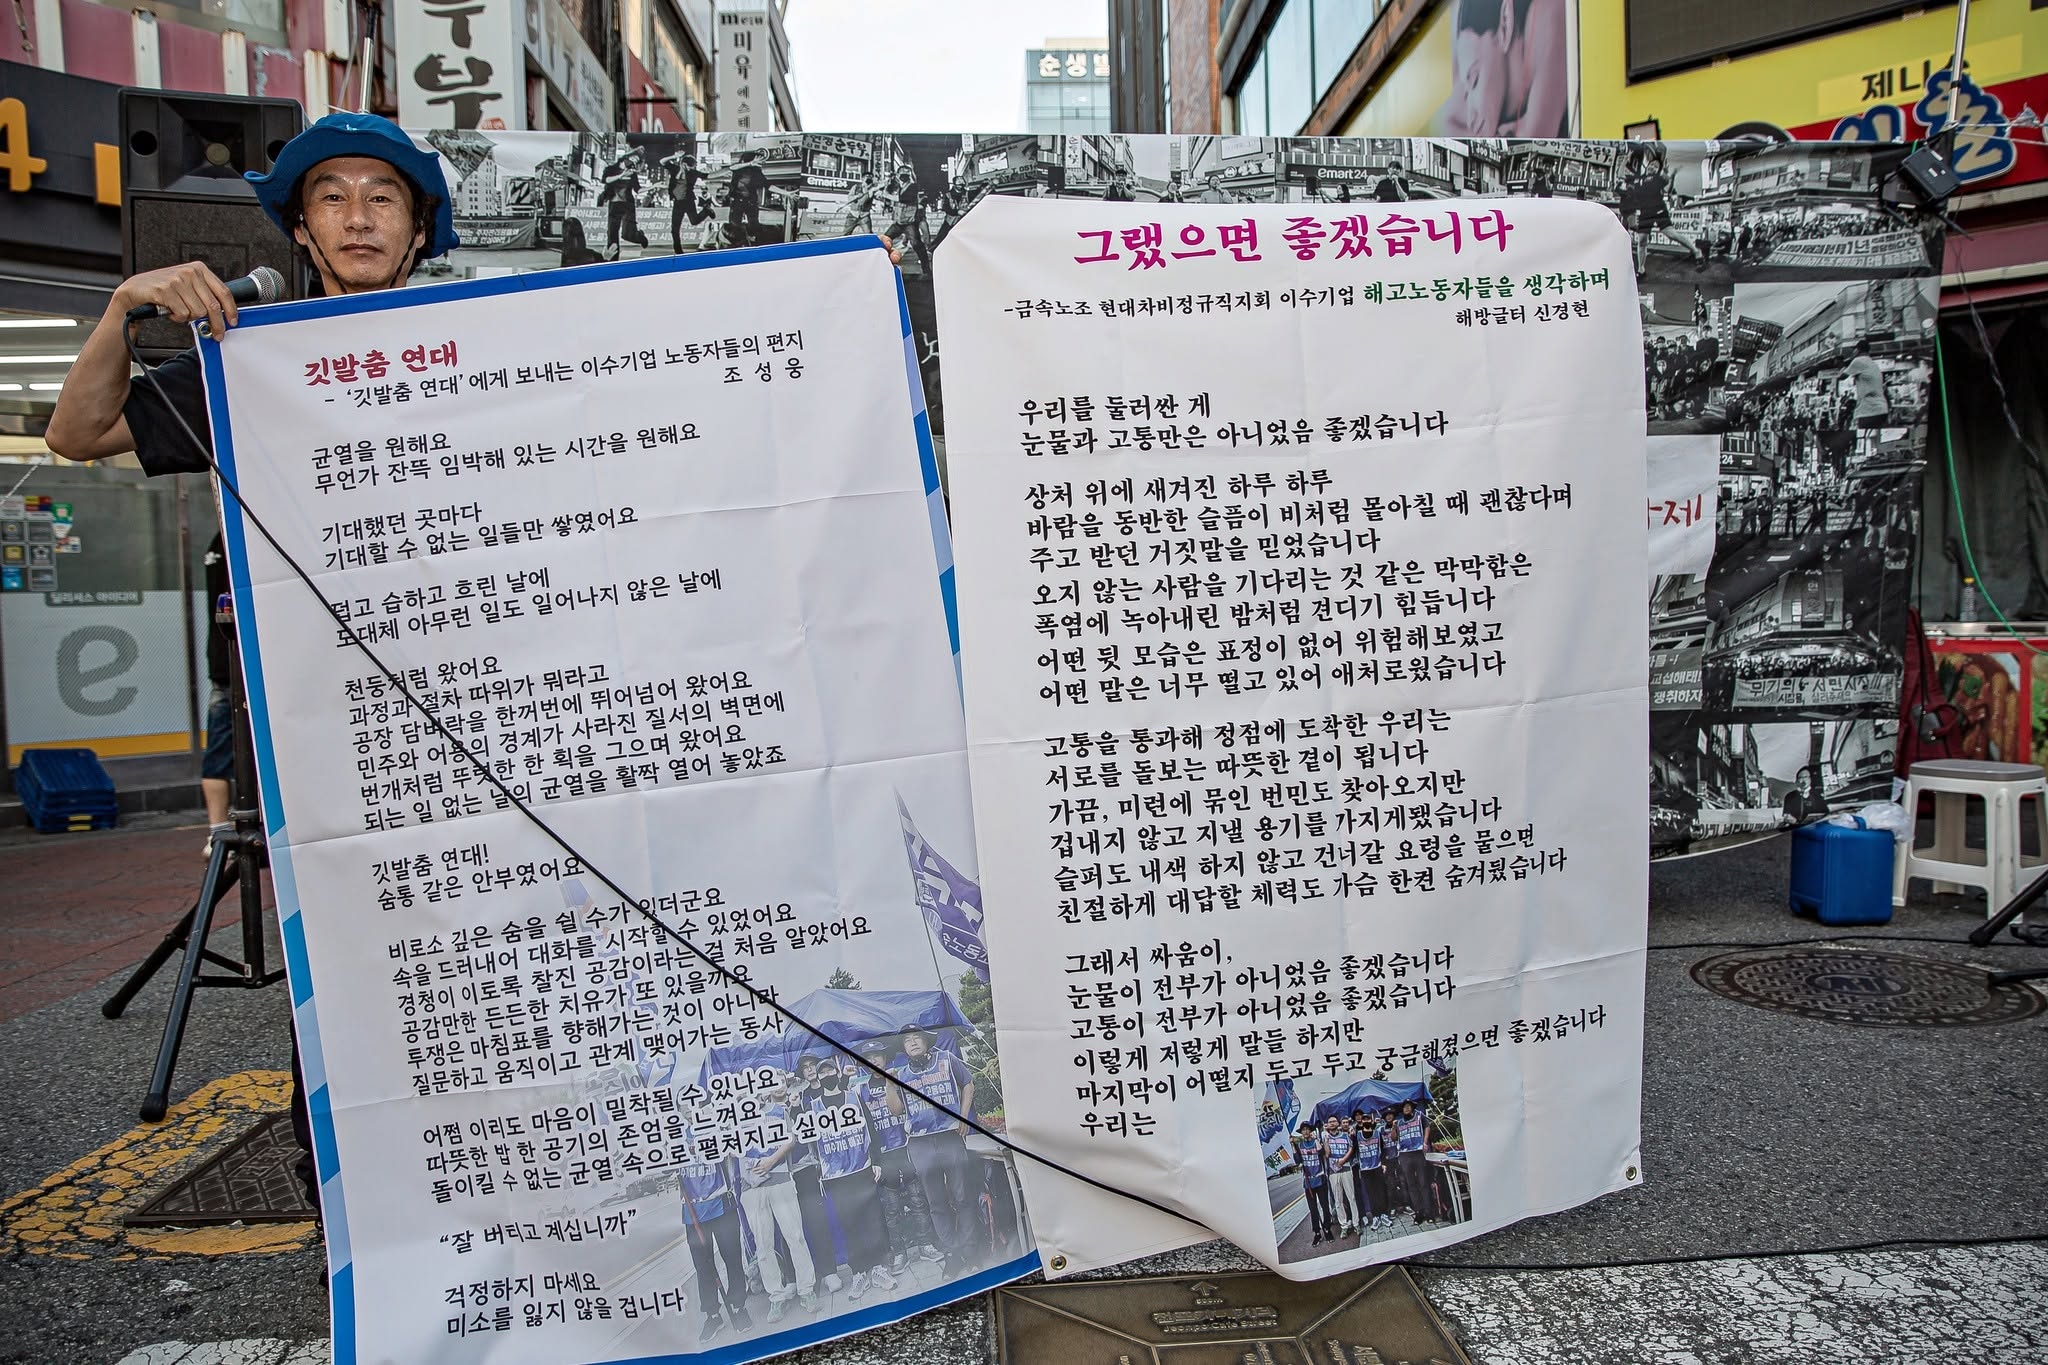 깃발춤 연대
- ‘깃발춤 연대’에게 보내는 이수기업 노동자들의 편지
조 성 웅
균열을 원해요
무언가 잔뜩 임박해 있는 시간을 원해요
기대했던 곳마다
기대할 수 없는 일들만 쌓였어요
덥고 습하고 흐린 날에
도대체 아무런 일도 일어나지 않은 날에
천둥처럼 왔어요
과정과 절차 따위가 뭐라고
공장 담벼락을 한꺼번에 뛰어넘어 왔어요
민주와 어용의 경계가 사라진 질서의 벽면에
번개처럼 뚜렷한 한 획을 그으며 왔어요
되는 일 없는 날의 균열을 활짝 열어 놓았죠
깃발춤 연대!
숨통 같은 안부였어요
비로소 깊은 숨을 쉴 수가 있더군요
속을 드러내어 대화를 시작할 수 있었어요
경청이 이토록 찰진 공감이라는 걸 처음 알았어요
공감만한 든든한 치유가 또 있을까요
투쟁은 마침표를 향해가는 것이 아니라
질문하고 움직이고 관계 맺어가는 동사
어쩜 이리도 마음이 밀착될 수 있나요
따뜻한 밥 한 공기의 존엄을 느껴요
돌이킬 수 없는 균열 속으로 펼쳐지고 싶어요
“잘 버티고 계십니까”
걱정하지 마세요
미소를 잃지 않을 겁니다
그랬으면 좋겠습니다
-금속노조 현대차비정규직지회 이수기업 해고노동자들을 생각하며
해방글터 신경현
우리를 둘러싼 게
눈물과 고통만은 아니었음 좋겠습니다
상처 위에 새겨진 하루 하루
바람을 동반한 슬픔이 비처럼 몰아칠 때 괜찮다며
주고 받던 거짓말을 믿었습니다
오지 않는 사람을 기다리는 것 같은 막막함은
폭염에 녹아내린 밤처럼 견디기 힘듭니다
어떤 뒷 모습은 표정이 없어 위험해보였고
어떤 말은 너무 떨고 있어 애처로웠습니다
고통을 통과해 정점에 도착한 우리는
서로를 돌보는 따뜻한 곁이 됩니다
가끔, 미련에 묶인 번민도 찾아오지만
겁내지 않고 지낼 용기를 가지게됐습니다
슬퍼도 내색 하지 않고 건너갈 요령을 물으면
친절하게 대답할 체력도 가슴 한켠 숨겨뒀습니다
그래서 싸움이,
눈물이 전부가 아니었음 좋겠습니다
고통이 전부가 아니었음 좋겠습니다
이렇게 저렇게 말들 하지만
마지막이 어떨지 두고 두고 궁금해졌으면 좋겠습니다
우리는
emart24
emart24
제니스
순생
미유에스테
딜리셔스 아이디어